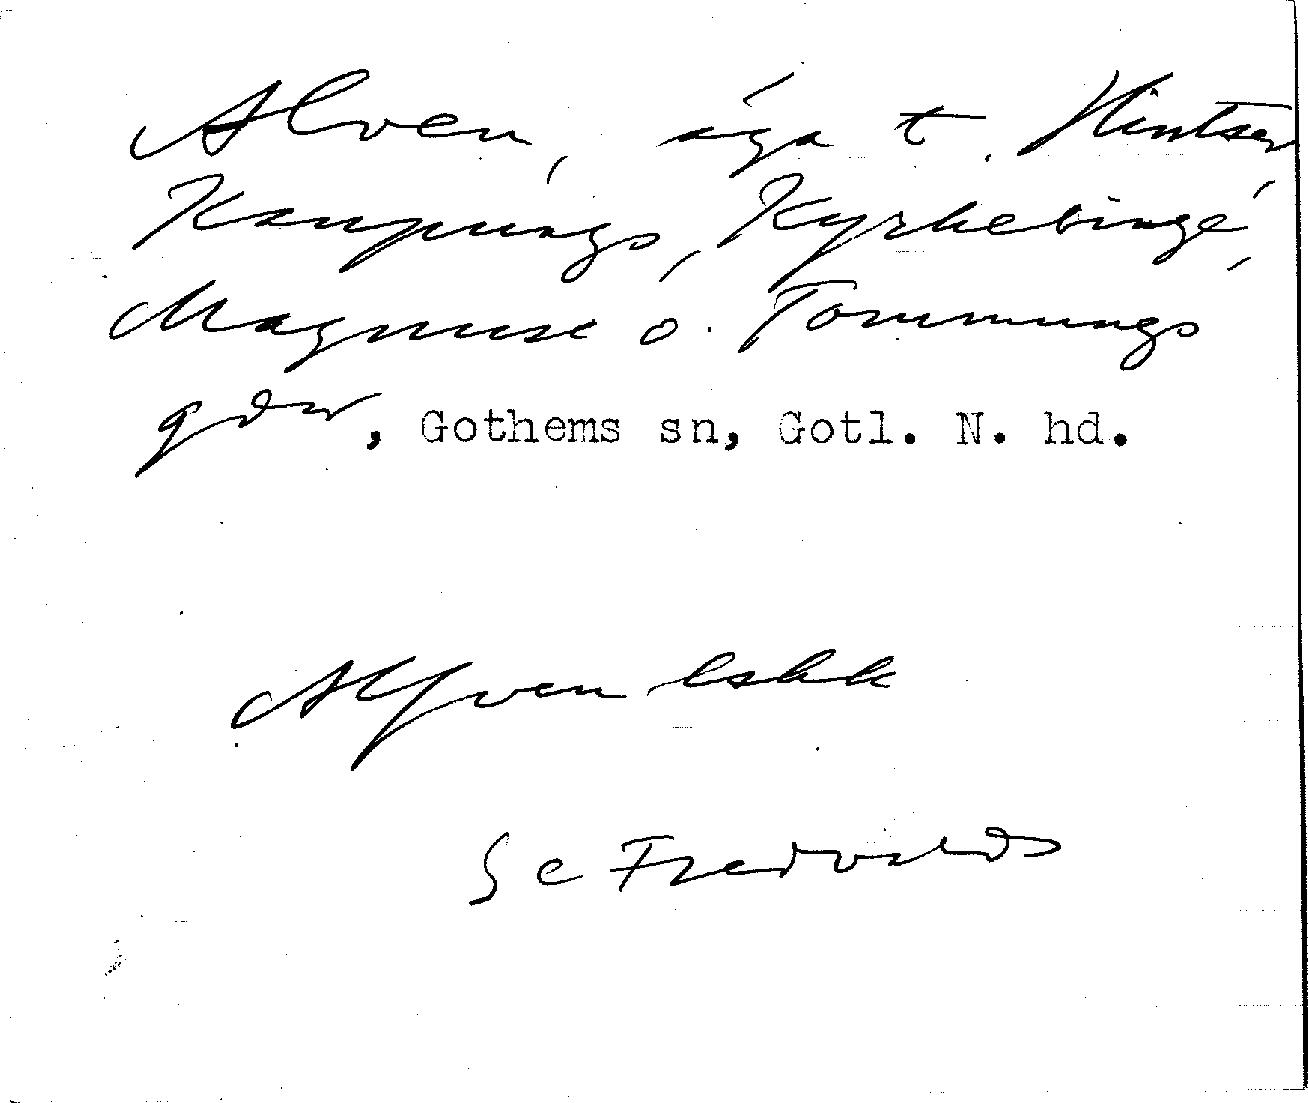 Alven, äga t. Hintser
Kaupungs, Kyrkebinge,
Magnuse o. Tommungs
gdar, Gothems sn, Gotl. N. hd.
Alfven lskk
Se Fredvalds